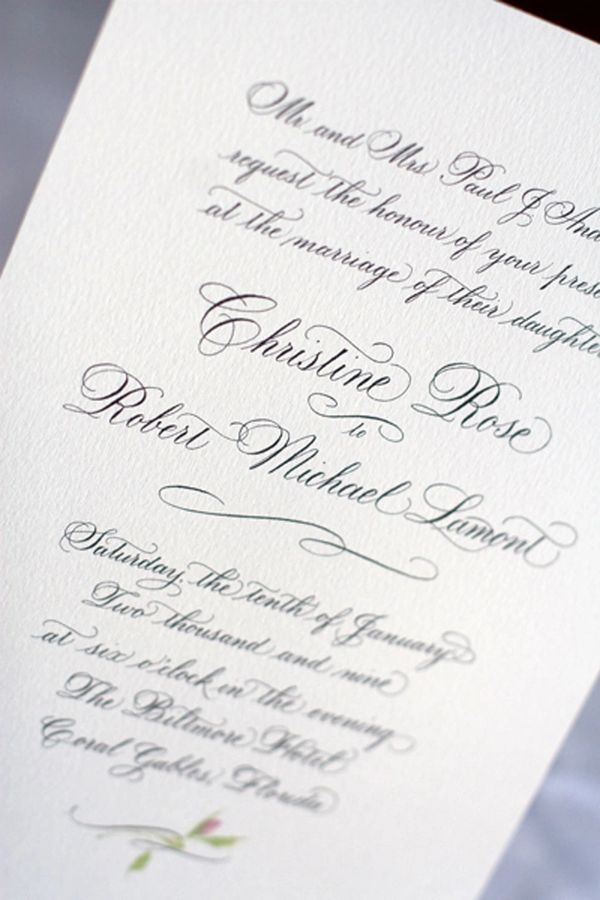 Mr and Mrs Paul J
request the honour of your
at the marriage of their
Christine Rose
to
Robert Michael Lamont
Saturday, the tenth of January
Two thousand and nine
at six o'clock in the evening
The Biltmore Hotel
Coral Gables, Florida